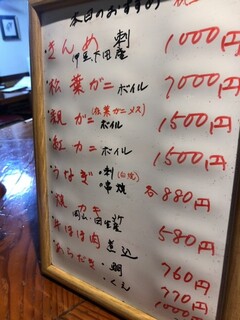 本日のおすすめ
・きんめ 刺 1000円
伊豆下田産
・松葉ガニ ボイル 7000円
・親ガニ (松葉ガニメス) ボイル 1500円
・紅カニ ボイル 1500円
・うなぎ ・刺 (白焼) ・串焼 各880円
カキ 580円
ほほ肉 煮込 760円
・あらだき ・鯛 770円
1000円